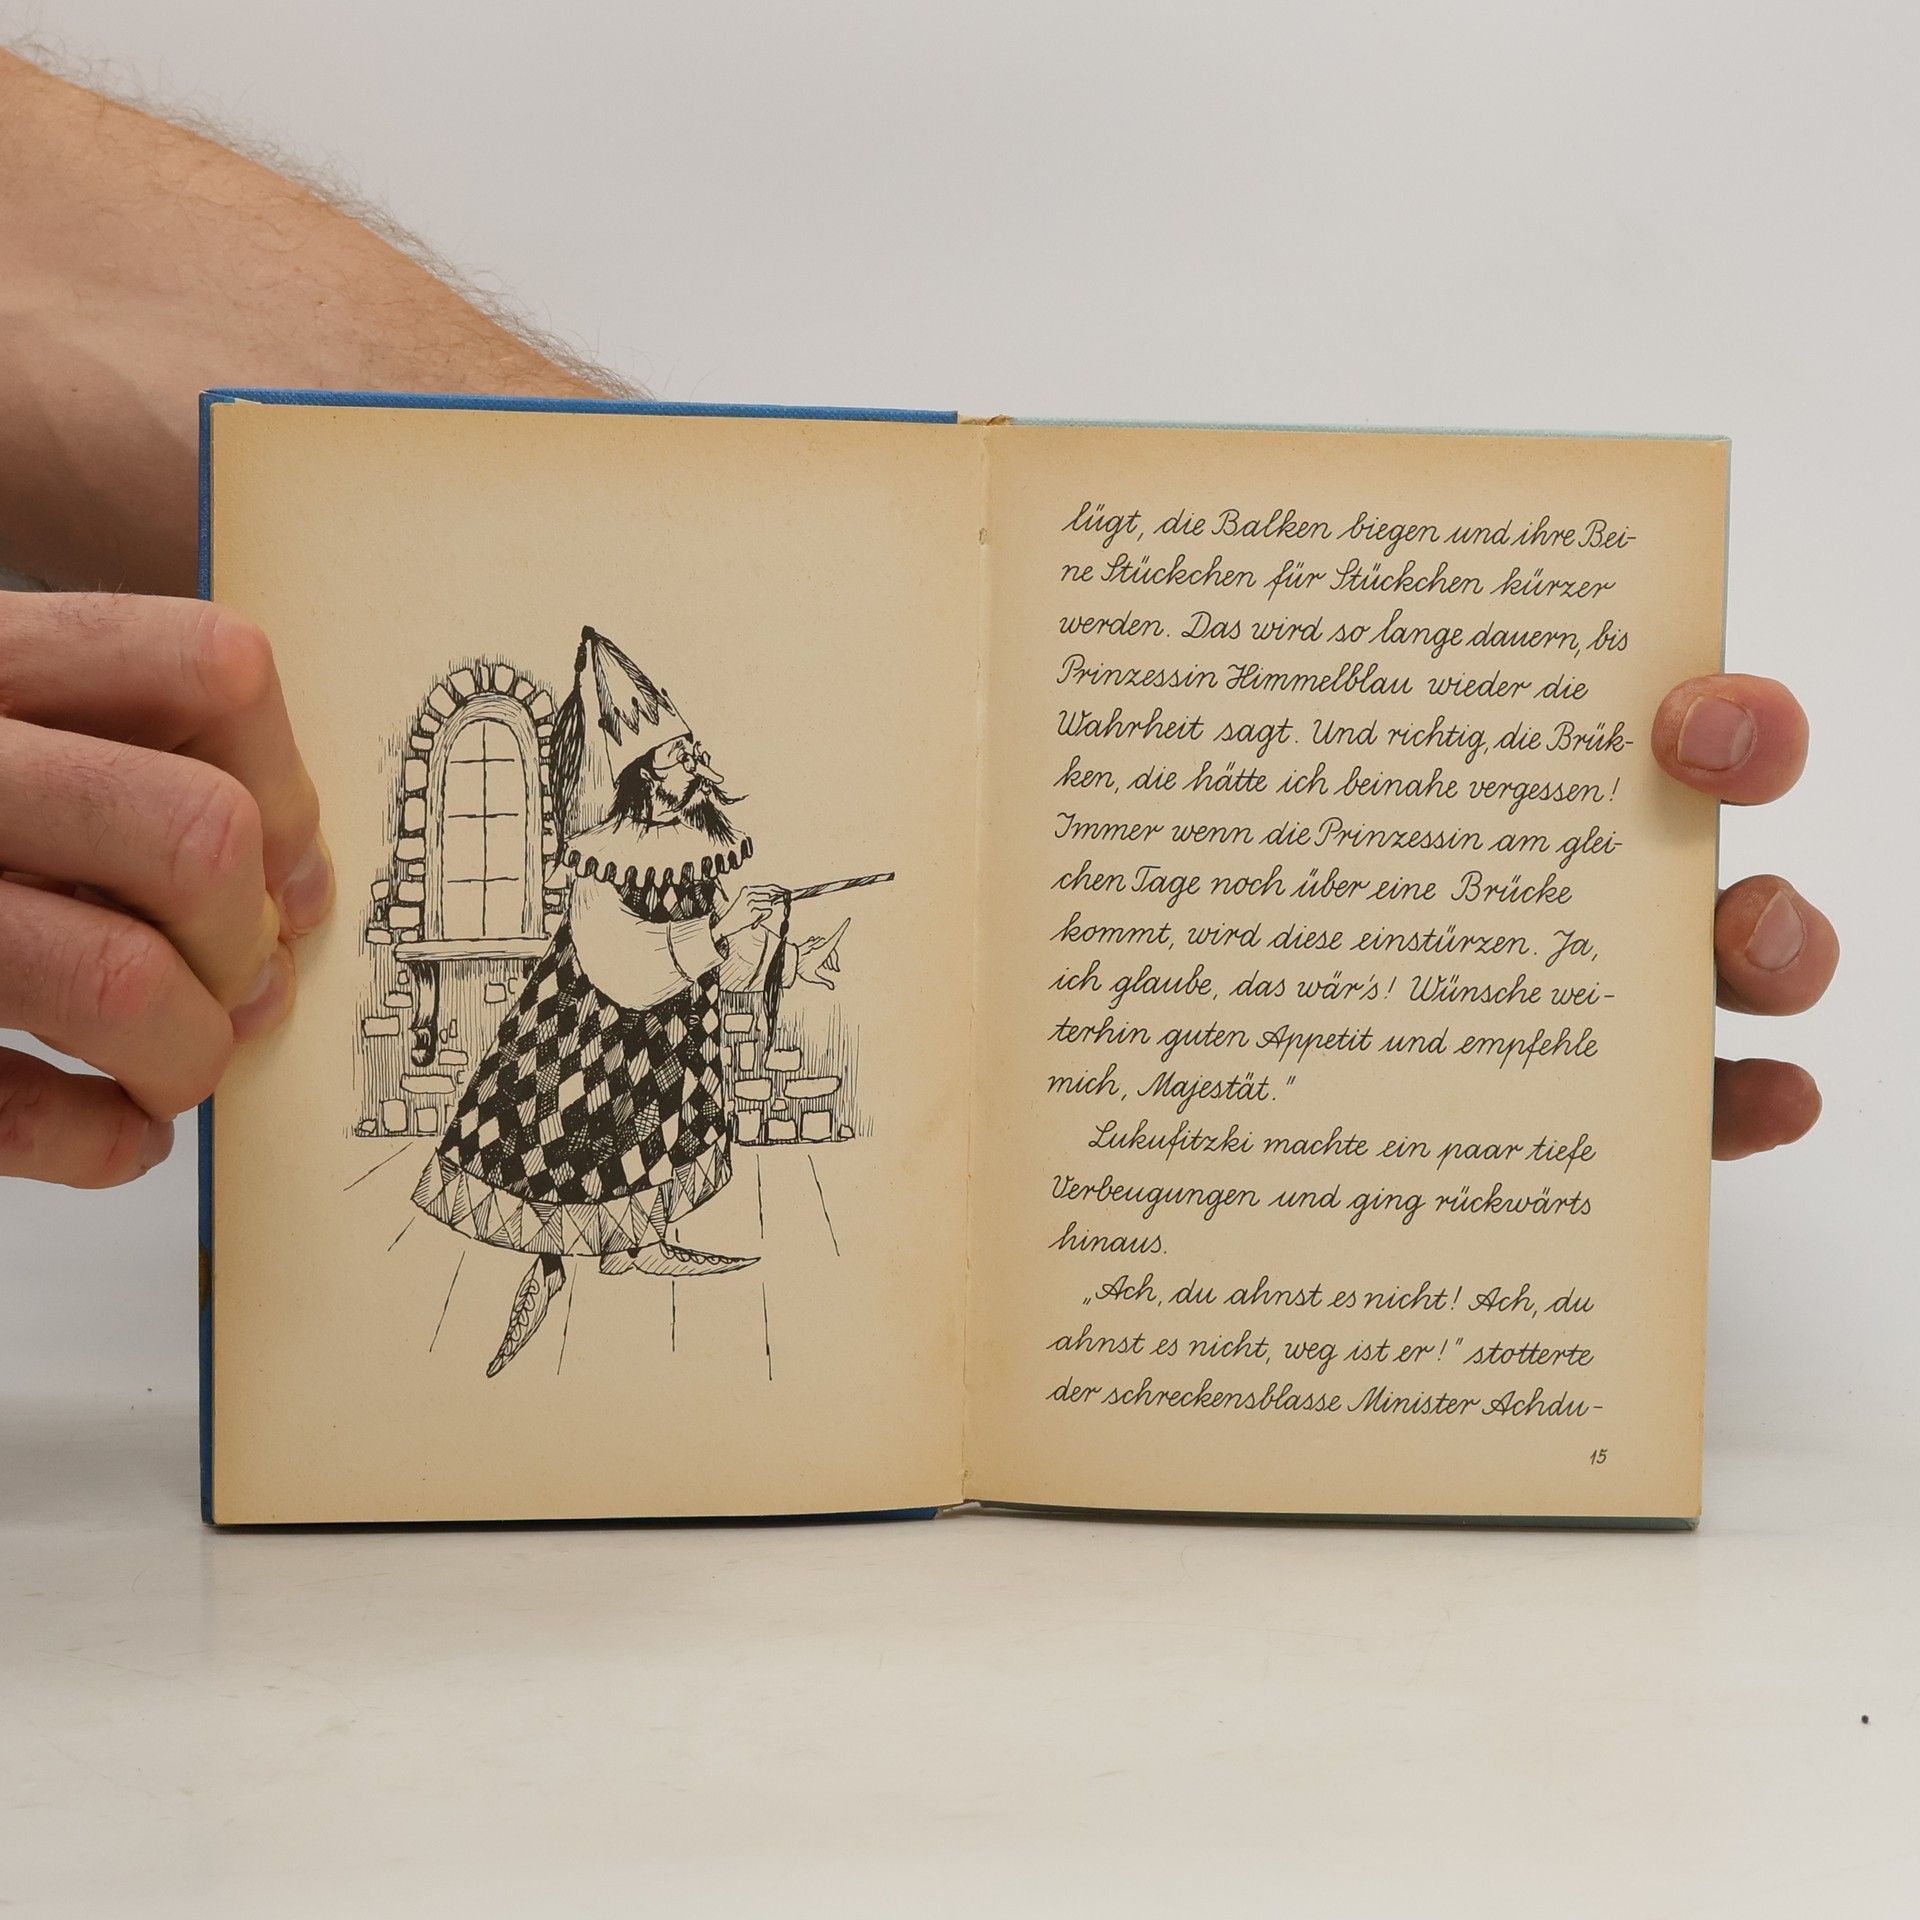 lügt, die Balken biegen und ihre Bei-
ne Stückchen für Stückchen kürzer
werden. Das wird so lange dauern, bis
Prinzessin Himmelblau wieder die
Wahrheit sagt. Und richtig, die Brük-
ken, die hätte ich beinahe vergessen!
Immer wenn die Prinzessin am glei-
chen Tage noch über eine Brücke
kommt, wird diese einstürzen. Ja,
ich glaube, das wär's! Wünsche wei-
terhin guten Appetit und empfehle
mich, Majestät."
Lukufitzki machte ein paar tiefe
Verbeugungen und ging rückwärts
hinaus.
„Ach, du ahnst es nicht! Ach, du
ahnst es nicht, weg ist er!" stotterte
der schreckensblasse Minister Achdu-
15